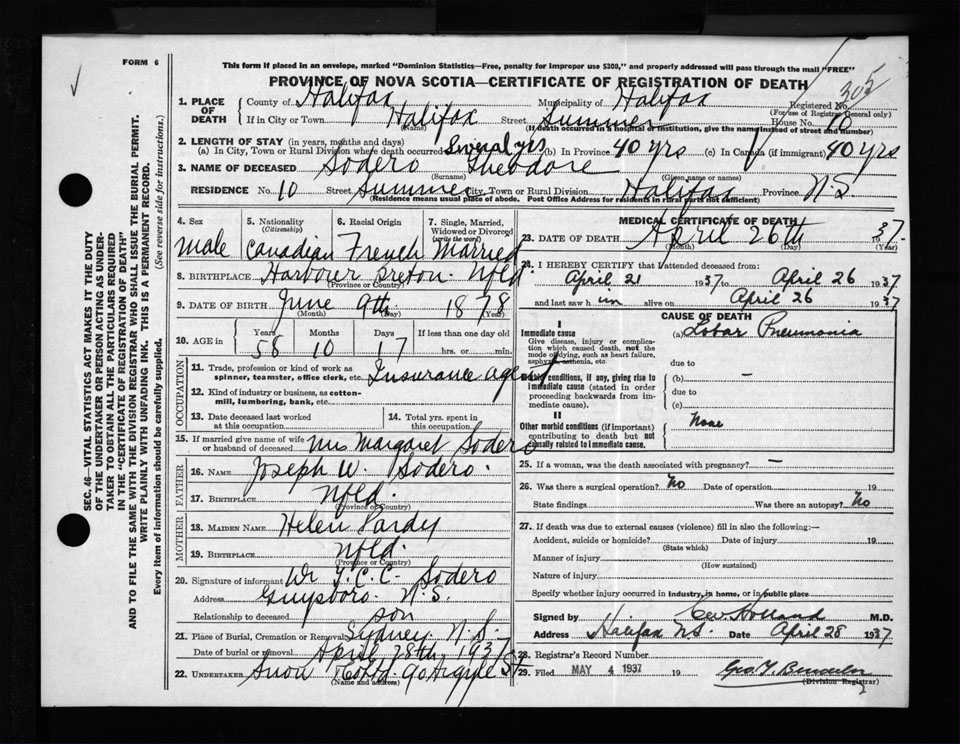 FORM 6
This form if placed in an envelope, marked "Dominion Statistics—Free, penalty for improper use $300," and properly addressed will pass through the mail "FREE"
PROVINCE OF NOVA SCOTIA—CERTIFICATE OF REGISTRATION OF DEATH
305
1. PLACE OF DEATH County of Halifax Municipality of Halifax Registered No.
(For use of Registrar General only)
If in City or Town Halifax Street Summer House No. 10
(Name) (If death occurred in a hospital or institution, give the name instead of street and number)
2. LENGTH OF STAY (in years, months and days)
(a) In City, Town or Rural Division where death occurred Several yrs (b) In Province 40 yrs (c) In Canada (if immigrant) 40 yrs
3. NAME OF DECEASED Sodero Theodore
(Surname) (Given name or names)
RESIDENCE No. 10 Street Summer City, Town or Rural Division Halifax Province N.S.
(Residence means usual place of abode. Post Office Address for residents in rural parts not sufficient)
SEC. 46—VITAL STATISTICS ACT MAKES IT THE DUTY
OF THE UNDERTAKER OR PERSON ACTING AS UNDER-
TAKER TO OBTAIN ALL THE PARTICULARS REQUIRED
IN THE "CERTIFICATE OF REGISTRATION OF DEATH"
AND TO FILE THE SAME WITH THE DIVISION REGISTRAR WHO SHALL ISSUE THE BURIAL PERMIT.
WRITE PLAINLY WITH UNFADING INK. THIS IS A PERMANENT RECORD.
Every item of information should be carefully supplied. (See reverse side for instructions.)
4. Sex 5. Nationality (Citizenship) 6. Racial Origin 7. Single, Married, Widowed or Divorced (write the word)
Male Canadian French Married
8. BIRTHPLACE Harbour Breton. Nfld
(Province or Country)
9. DATE OF BIRTH June 9th 1878
(Month) (Day) (Year)
10. AGE in Years Months Days If less than one day old
58 10 17 hrs. or min.
OCCUPATION
11. Trade, profession or kind of work as spinner, teamster, office clerk, etc. Insurance Agent
12. Kind of industry or business, as cotton-mill, lumbering, bank, etc.
13. Date deceased last worked at this occupation
14. Total yrs. spent in this occupation
15. If married give name of wife or husband of deceased Mrs Margaret Sodero
FATHER
16. NAME Joseph W. Sodero.
17. BIRTHPLACE Nfld.
(Province or Country)
MOTHER
18. MAIDEN NAME Helen Pardy
19. BIRTHPLACE Nfld.
(Province or Country)
20. Signature of informant C.C. Sodero
Address Guysboro. N.S.
Relationship to deceased son
21. Place of Burial, Cremation or Removal Sydney. N.S.
Date of burial or removal April 28th 1937
22. UNDERTAKER Snow 90 Argyle St
(Name and address)
MEDICAL CERTIFICATE OF DEATH
23. DATE OF DEATH April 26th 1937.
(Month) (Day)
24. I HEREBY CERTIFY that I attended deceased from:
April 21 1937 to April 26 1937
and last saw him alive on April 26 1937
CAUSE OF DEATH
I
Immediate cause (a) Lobar Pneumonia
Give disease, injury or complication which caused death, not the mode of dying, such as heart failure, asphyxia, asthenia, etc.
due to
Morbid conditions, if any, giving rise to immediate cause (stated in order proceeding backwards from immediate cause). (b) —
due to
(c)
II
Other morbid conditions (if important) contributing to death but not causally related to immediate cause. None
25. If a woman, was the death associated with pregnancy? —
26. Was there a surgical operation? No Date of operation 19
State findings Was there an autopsy? No
27. If death was due to external causes (violence) fill in also the following:—
Accident, suicide or homicide? Date of injury 19
(State which)
Manner of injury
(How sustained)
Nature of injury
Specify whether injury occurred in industry, in home, or in public place
Signed by Holland M.D.
Address Halifax NS. Date April 28 1937
28. Registrar's Record Number
29. Filed MAY 4 1937 19 Geo. T.
(Division Registrar)